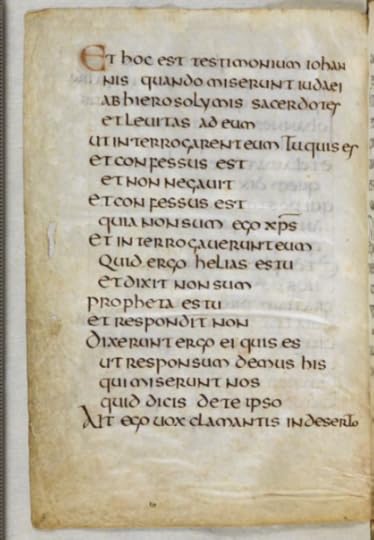 Et hoc est testimonium iohan
nis quando miserunt iudaei
ab hierosolymis sacerdotes
et leuitas ad eum
ut interrogarent eum Tu quis es
et confessus est
et non negauit
et confessus est
quia non sum ego xp̄s
Et interrogauerunt eum
Quid ergo helias es tu
et dixit non sum
propheta es tu
et respondit non
Dixerunt ergo ei quis es
ut responsum demus his
qui miserunt nos
quid dicis de te ipso
Ait ego uox clamantis in deserto